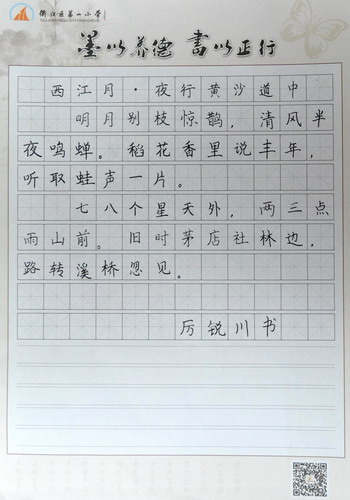 衢江区第一小学
墨以养德 书以正行
西江月·夜行黄沙道中
明月别枝惊鹊，清风半
夜鸣蝉。稻花香里说丰年，
听取蛙声一片。
七八个星天外，两三点
雨山前。旧时茅店社林边，
路转溪桥忽见。
厉锐川书